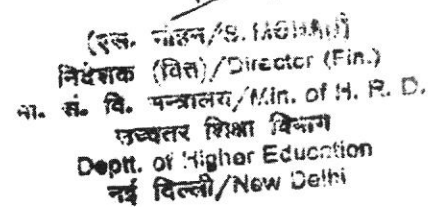 (एस. मोहन/S. MOHAN)
निदेशक (वित्त)/Director (Fin.)
मा. सं. वि. मन्त्रालय/Min. of H. R. D.
उच्चतर शिक्षा विभाग
Deptt. of Higher Education
नई दिल्ली/New Delhi